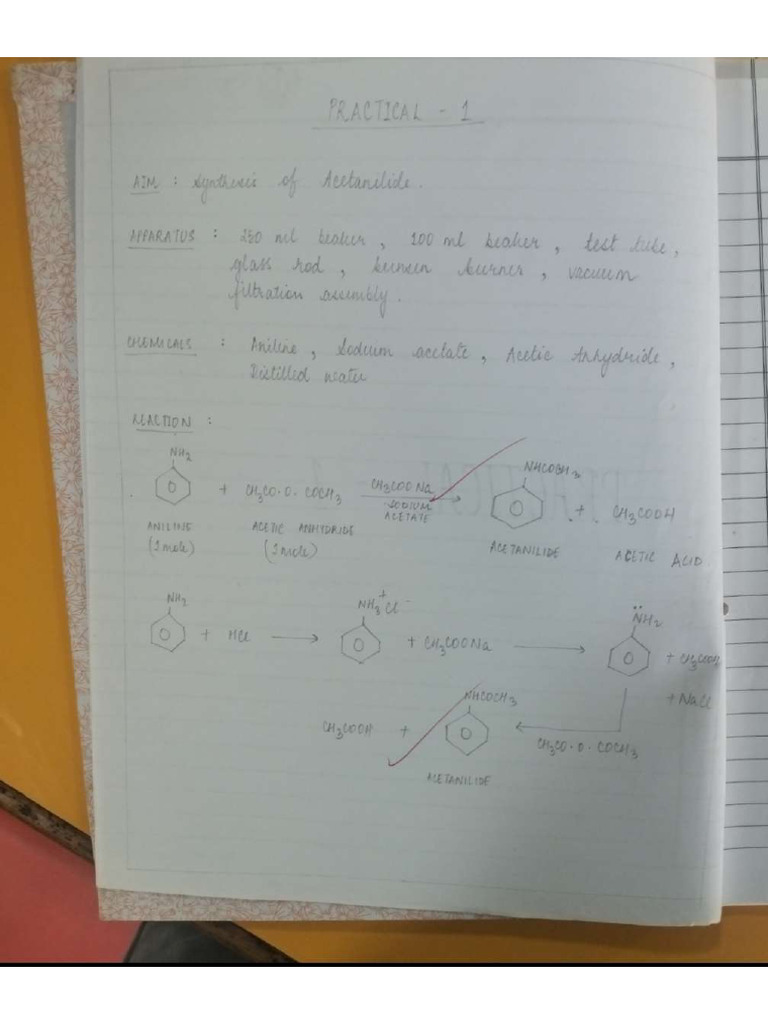 PRACTICAL - 1
AIM : Synthesis of Acetanilide.
APPARATUS : 250 ml beaker, 100 ml beaker, test tube,
glass rod, bunsen burner, vacuum
filtration assembly.
CHEMICALS : Aniline, Sodium acetate, Acetic Anhydride,
Distilled water
REACTION :
NH2 + CH3CO·O·COCH3 CH3COONa SODIUM ACETATE → NHCOCH3 + CH3COOH
ANILINE (1 mole) ACETIC ANHYDRIDE (1 mole) ACETANILIDE ACETIC ACID
NH2 + HCl → NH3+Cl- + CH3COONa → N̈H2 + CH3COOH
+ NaCl
CH3COOH + NHCOCH3 ← CH3CO·O·COCH3
ACETANILIDE